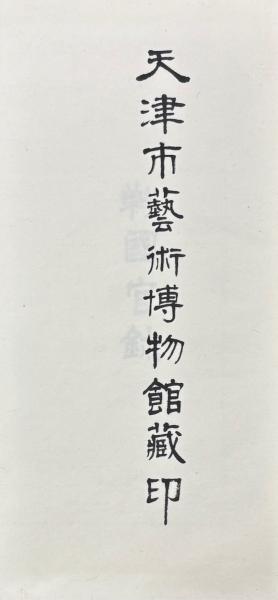 天津市藝術博物館藏印